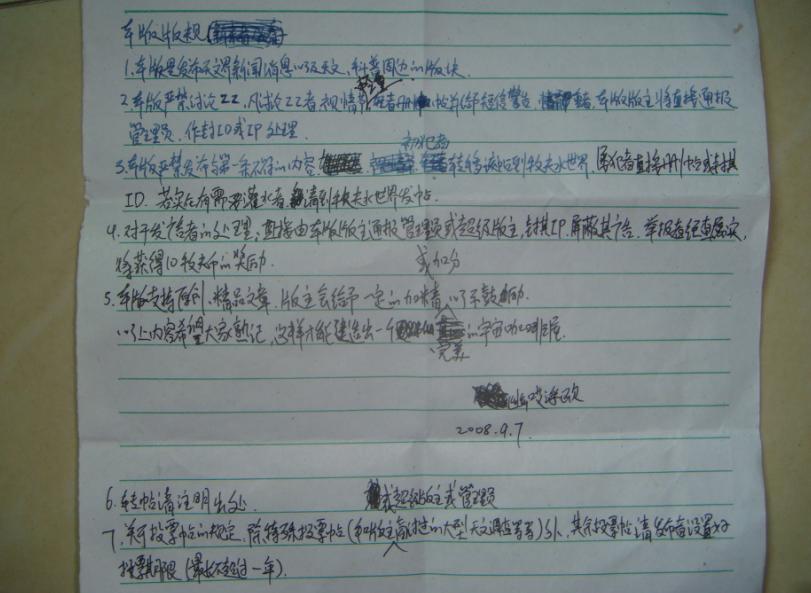 本版版规
1.本版是发布天文界新闻消息以及天文、科普周边的版块.
2.本版严禁讨论ZZ.凡讨论ZZ者视情节 帖并给短信警告. 本版版主将直接通报
管理员.作封ID或IP处理.
初犯者
3.本版严禁发布与第一条不符的内容. 转移该帖到牧夫水世界.屡犯者直接删帖或封其
ID. 若实在有需要灌水者,请到牧夫水世界发帖.
4.对于发广告者的处理:直接由本版版主通报管理员或超级版主,封其IP.屏蔽其广告.举报者经查属实,
将获得10牧夫币的奖励.
或加分
5.本版支持原创、精品文章.版主会给予一定的加精 以示鼓励.
以上内容希望大家熟记,这样才能建造出一个 的宇宙咖啡屋.
完美
2008.9.7.
6.转帖请注明出处.
或超级版主或管理员
7.关于投票帖的规定.除特殊投票帖(如版主 的大型天文调查等等)外,其余投票帖请发布者设置好
投票期限(最长不超过一年).